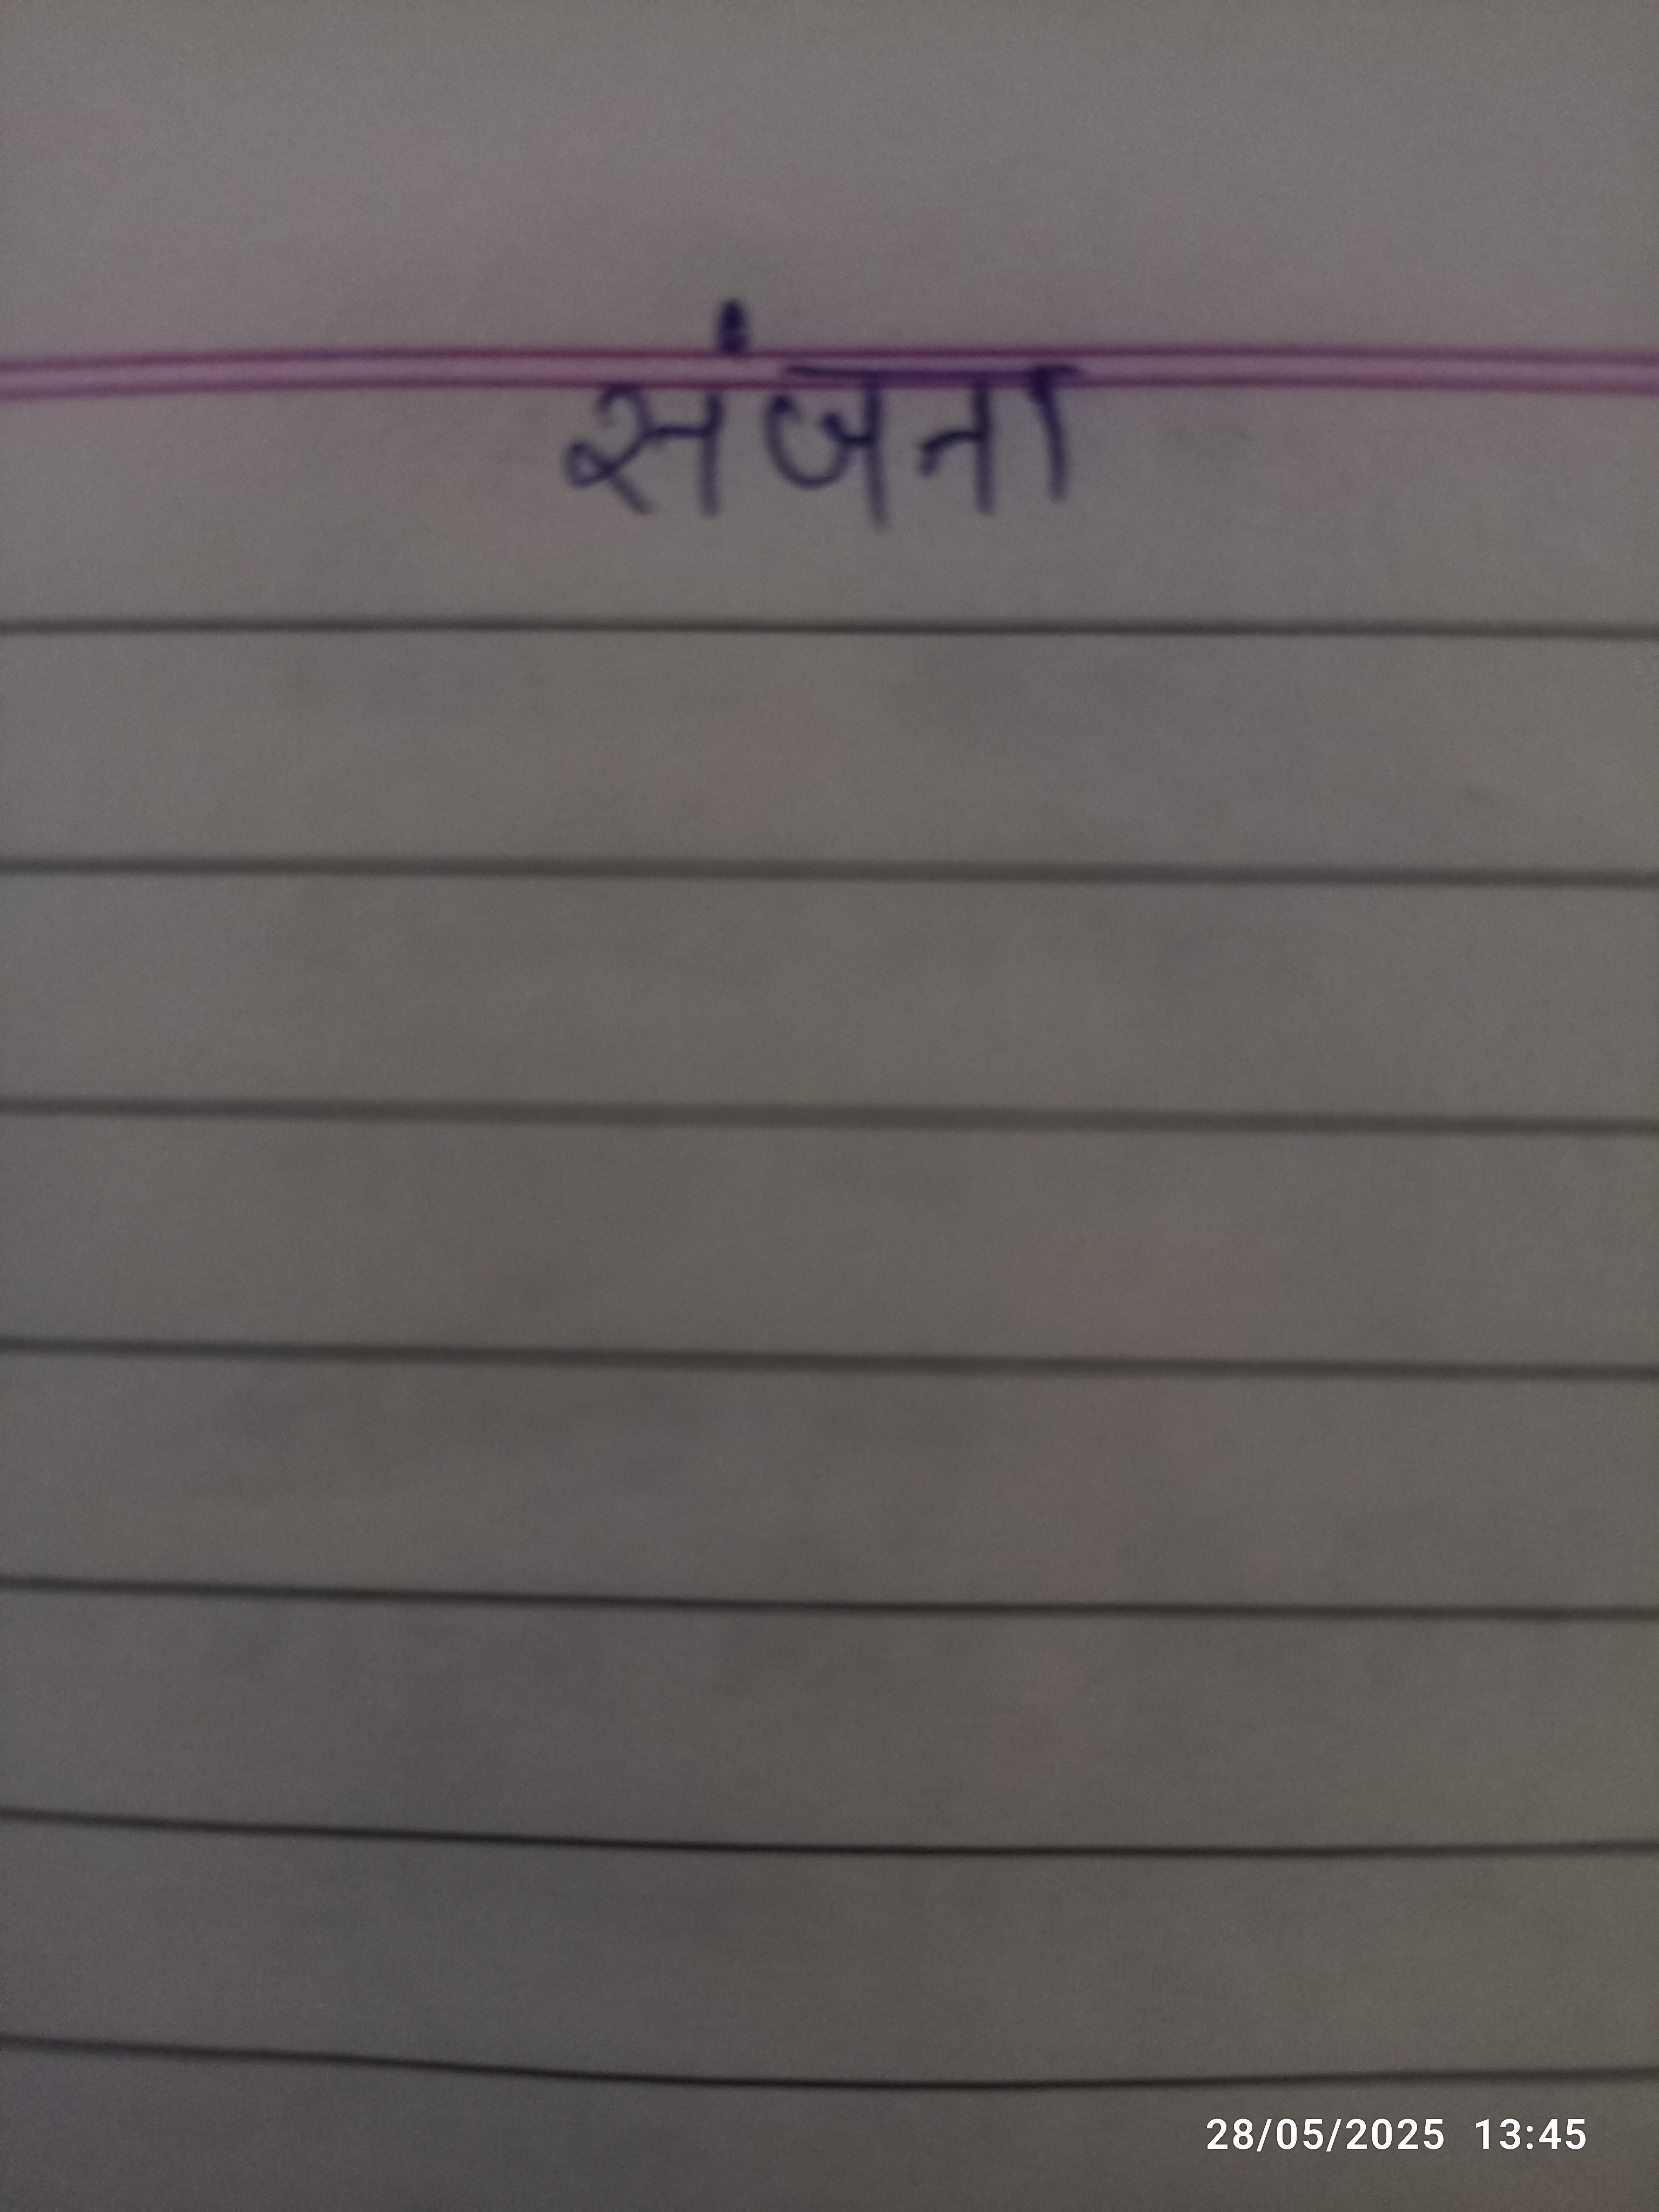 संजना
28/05/2025 13:45